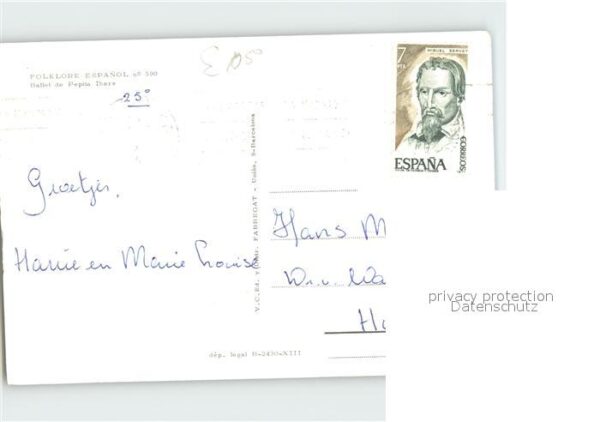 FOLKLORE ESPAÑOL nº 590
Ballet de Pepita Ibars
25°
Groetjes.
Harrie en Marie Louise
V.C.Ed. Vdau. FABREGAT - Unión, 9-Barcelona
dép. legal B-2430-XIII
7
PTS
MIGUEL SERVET
ESPAÑA
CORREOS
Hans M
Ha
privacy protection
Datenschutz